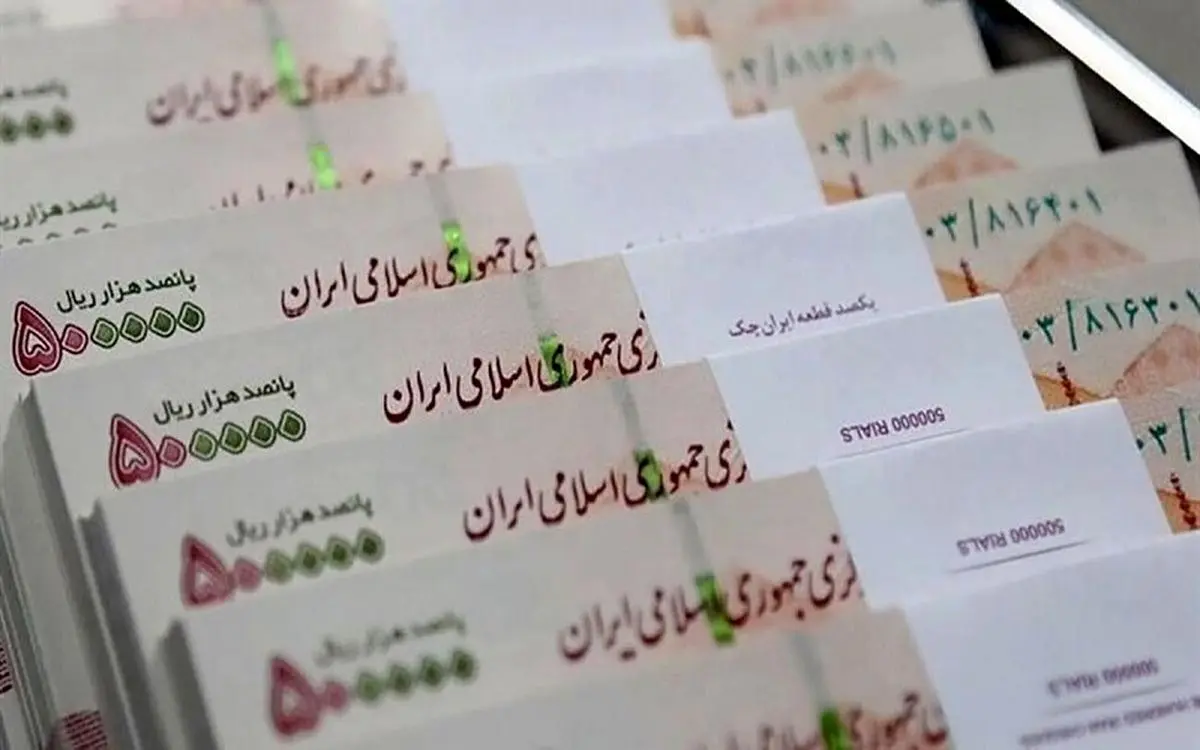 جمهوری اسلامی ایران
۰۳/۸۱۶۶۰۱
پانصد هزار
۰۳/۸۱۶۵۰۱
پانصد هزار ریال
۰۳/۸۱۶۴۰۱
جمهوری اسلامی ایران
پانصد هزار ریال
۵۰۰۰۰۰
یکصد قطعه ایران چک
۰۳/۸۱۶۳۰۱
جمهوری اسلامی ایران
پانصد هزار ریال
۵۰۰۰۰۰
500000 RIALS
۰۳/
جمهوری اسلامی ایران
پانصد هزار ریال
۵۰۰۰۰۰
500000 RIALS
جمهوری اسلامی ایران
پانصد هزار ریال
۵۰۰۰۰۰
500000 RIALS